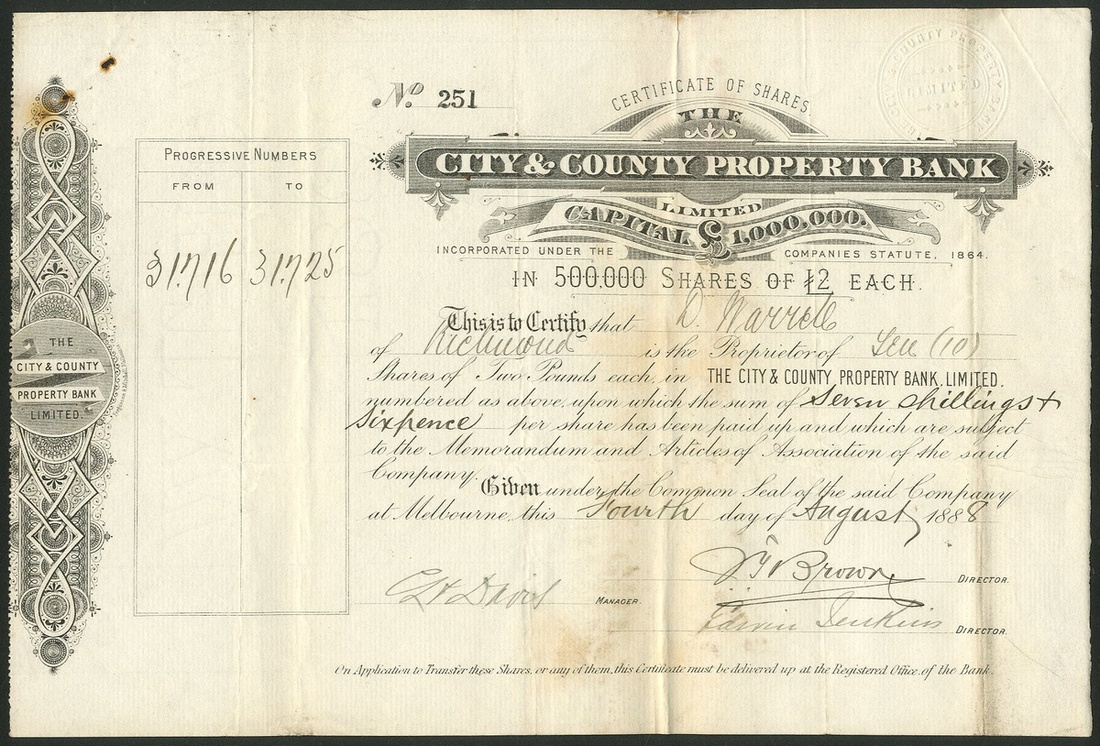 No. 251
CERTIFICATE OF SHARES
THE
CITY & COUNTY PROPERTY BANK
LIMITED
CAPITAL £1,000,000.
INCORPORATED UNDER THE COMPANIES STATUTE, 1864.
IN 500.000 SHARES OF £2 EACH.
PROGRESSIVE NUMBERS
FROM TO
31716 31725
This is to Certify that D. Warrell
of Richmond is the Proprietor of Ten (10)
Shares of Two Pounds each, in THE CITY & COUNTY PROPERTY BANK, LIMITED.
numbered as above, upon which the sum of Seven shillings +
Sixpence per share has been paid up and which are subject
to the Memorandum and Articles of Association of the said
Company.
Given under the Common Seal of the said Company
at Melbourne, this Fourth day of August 1888
Brown DIRECTOR.
Davis MANAGER.
Edwin Jenkins DIRECTOR.
On Application to Transfer these Shares, or any of them, this Certificate must be delivered up at the Registered Office, of the Bank.
THE
CITY & COUNTY
PROPERTY BANK
LIMITED.
COUNTY PROPERTY BANK
LIMITED